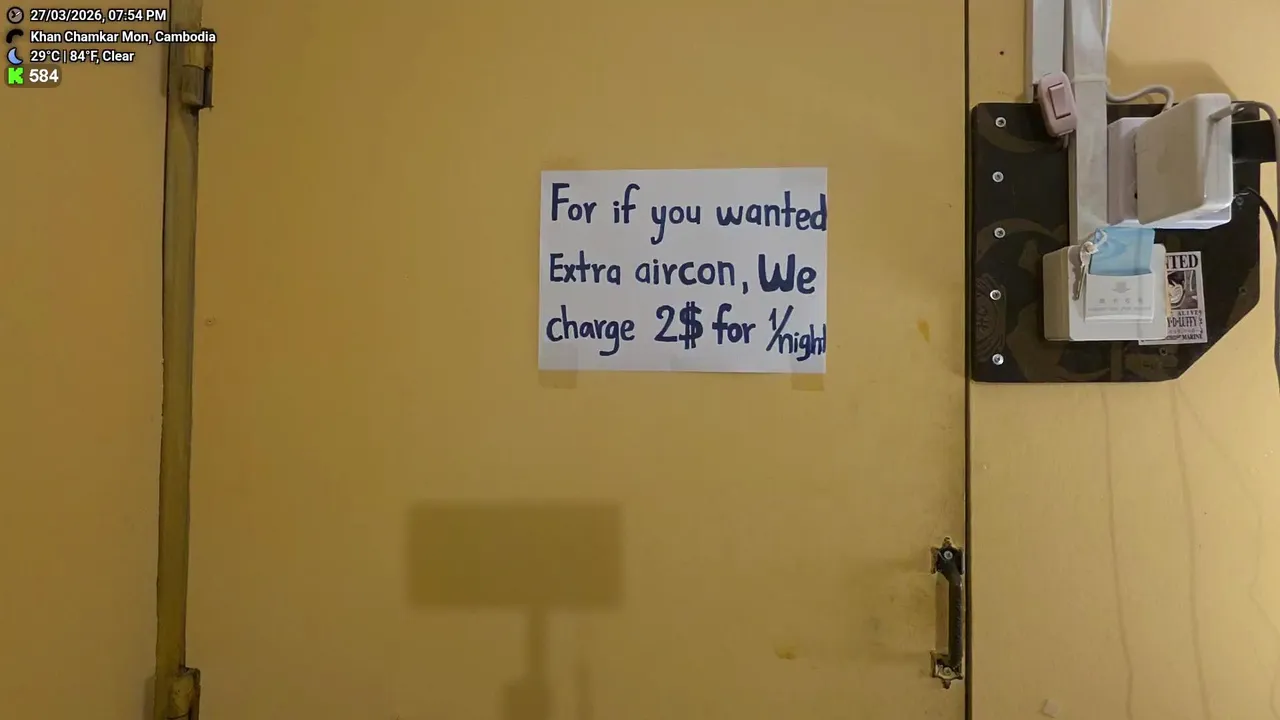 27/03/2026, 07:54 PM
Khan Chamkar Mon, Cambodia
29°C | 84°F, Clear
K 584
For if you wanted
Extra aircon, We
charge 2$ for 1/night
NTED
Y·D·LUFFY
MARINE